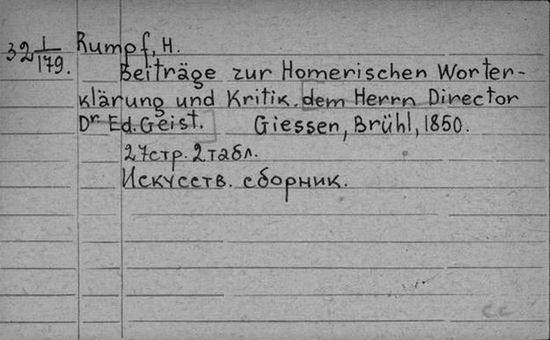 32 1/179. Rumpf, H.
Beiträge zur Homerischen Worter-
klärung und Kritik. dem Herrn Director
Dr Ed. Geist. Giessen, Brühl, 1850.
27стр. 2 табл.
Искусств. сборник.
cc